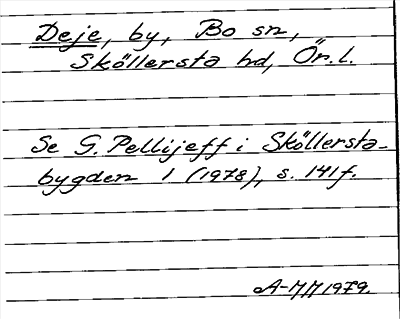 Deje, by, Bo sn,
Sköllersta hd, Ör. l.
Se G. Pellijeff i Sköllersta-
bygden 1 (1978), s. 141f.
1979.